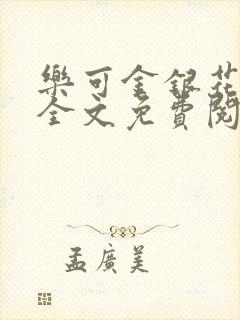 樂可金銀花
全文免費閱
孟廣美